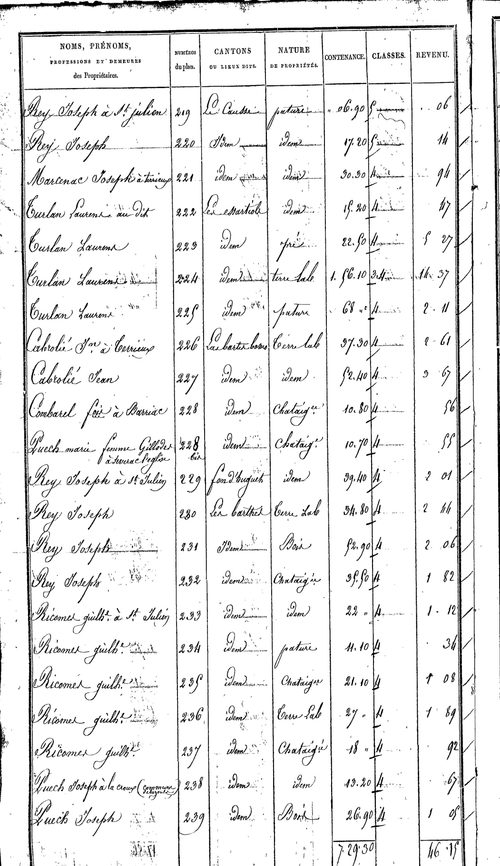 NOMS, PRÉNOMS, PROFESSIONS ET DEMEURES des Propriétaires. NUMÉROS du plan. CANTONS OU LIEUX DITS. NATURE DE PROPRIÉTÉS. CONTENANCE. CLASSES. REVENU.
Rey Joseph à St. julien 219 Le Causse pature " 06.90 5 " 06
Rey Joseph 220 Idem idem 17.20 5 " 14
Marcenac Joseph à 221 idem idem 30.30 4 " 94
Turlan Laurens au dit 222 idem 15.20 4 " 47
Turlan Laurens 223 idem pré 22.50 4 5 27
Turlan Laurens 224 idem terre lab 1.56.10 3.4 14 37
Turlan Laurens 225 idem pature 68 " 4 2 11
Cabrolié Jn. à Terrieux 226 Terre lab 37.30 4 2 61
Cabrolié Jean 227 idem idem 52.40 4 3 67
Combarel foix à Barriac 228 idem Chataigee 10.80 4 56
Puech marie femme Gillodes 228 idem Chataige 10.70 4 55
à l'eglise bis
Rey Joseph à St Julien 229 idem 39.40 4 2 01
Rey Joseph 230 Les barthes Terre Lab 34.80 4 2 44
Rey Joseph 231 Idem Bois 52.90 4 2 06
Rey Joseph 232 idem Chataigee 35.50 4 1 82
Ricomes guilhe. à St Julien 233 idem idem 22 " 4 1.12
Ricomes guilhe. 234 idem pature 11.10 4 34
Ricomes guilhe. 235 idem Chataigee 21.10 4 1 08
Ricomes guilhe. 236 idem Terre Lab 27 " 4 1 89
Ricomes guilhe. 237 idem Chataigee 18 " 4 92
Puech Joseph à la croux 238 idem idem 13.20 4 67
Puech Joseph 239 idem Bois 26.90 4 1 05
7.29.30 46.15